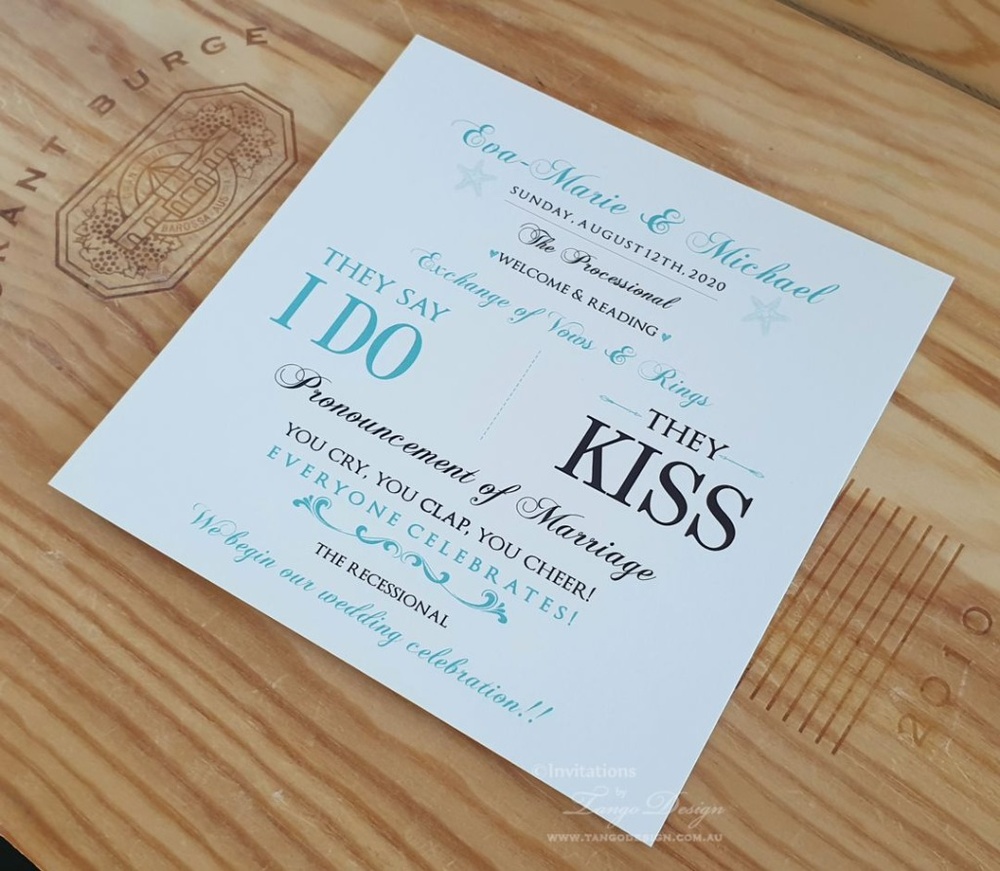 GRANT BURGE
BAROSSA AUST
Eva-Marie & Michael
SUNDAY, AUGUST 12TH, 2020
The Processional
WELCOME & READING
Exchange of Vows & Rings
THEY SAY
I DO
THEY
KISS
Pronouncement of Marriage
YOU CRY, YOU CLAP, YOU CHEER!
EVERYONE CELEBRATES!
THE RECESSIONAL
We begin our wedding celebration!!
2010
©Invitations
by
Tango Design
WWW.TANGODESIGN.COM.AU